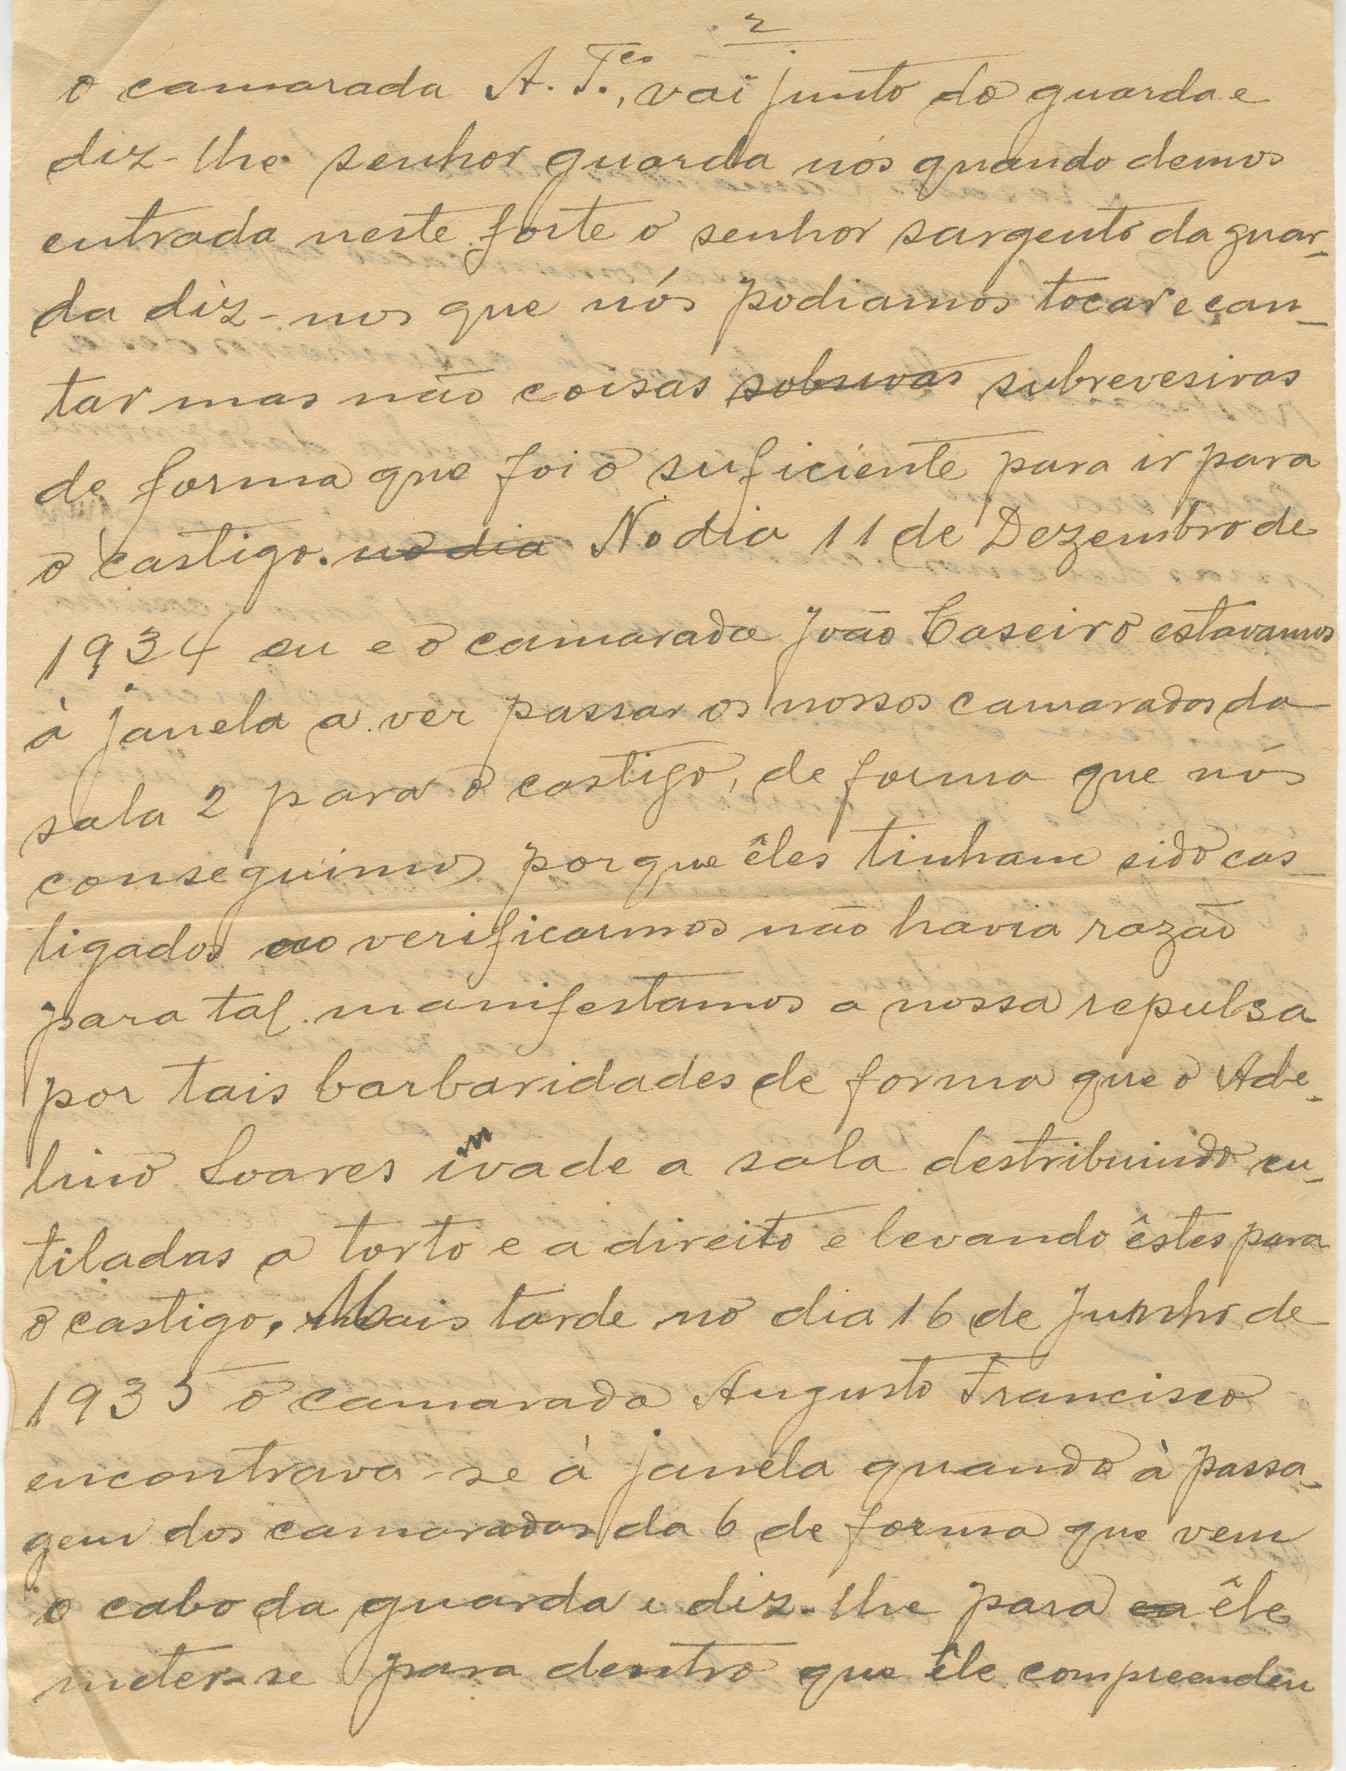 2
o camarada A. F.co, vai junto do guarda e
diz-lhe senhor guarda nós quando demos
entrada neste forte o senhor sargento da guar-
da diz-nos que nós podiamos tocar e can-
tar mas não coisas sobsivas subrevesivas
de forma que foi o suficiente para ir para
o castigo. no dia No dia 11 de Dezembro de
1934 eu e o camarada João Caseiro estavamos
à janela a ver passar os nossos camaradas da
sala 2 para o castigo, de forma que nós
conseguimos porque êles tinham sido cas-
tigados ao verificarmos não havia razão
para tal manifestamos a nossa repulsa
por tais barbaridades de forma que o Ade-
lino Soares invade a sala destribuindo cu-
tiladas a torto e a direito e levando êstes para
o castigo. Mais tarde no dia 16 de Junho de
1935 o camarada Augusto Francisco
encontrava-se à janela quando à passa-
gem dos camaradas da 6 de forma que vem
o cabo da guarda e diz-lhe para êle
meter-se para dentro que êle compreendeu